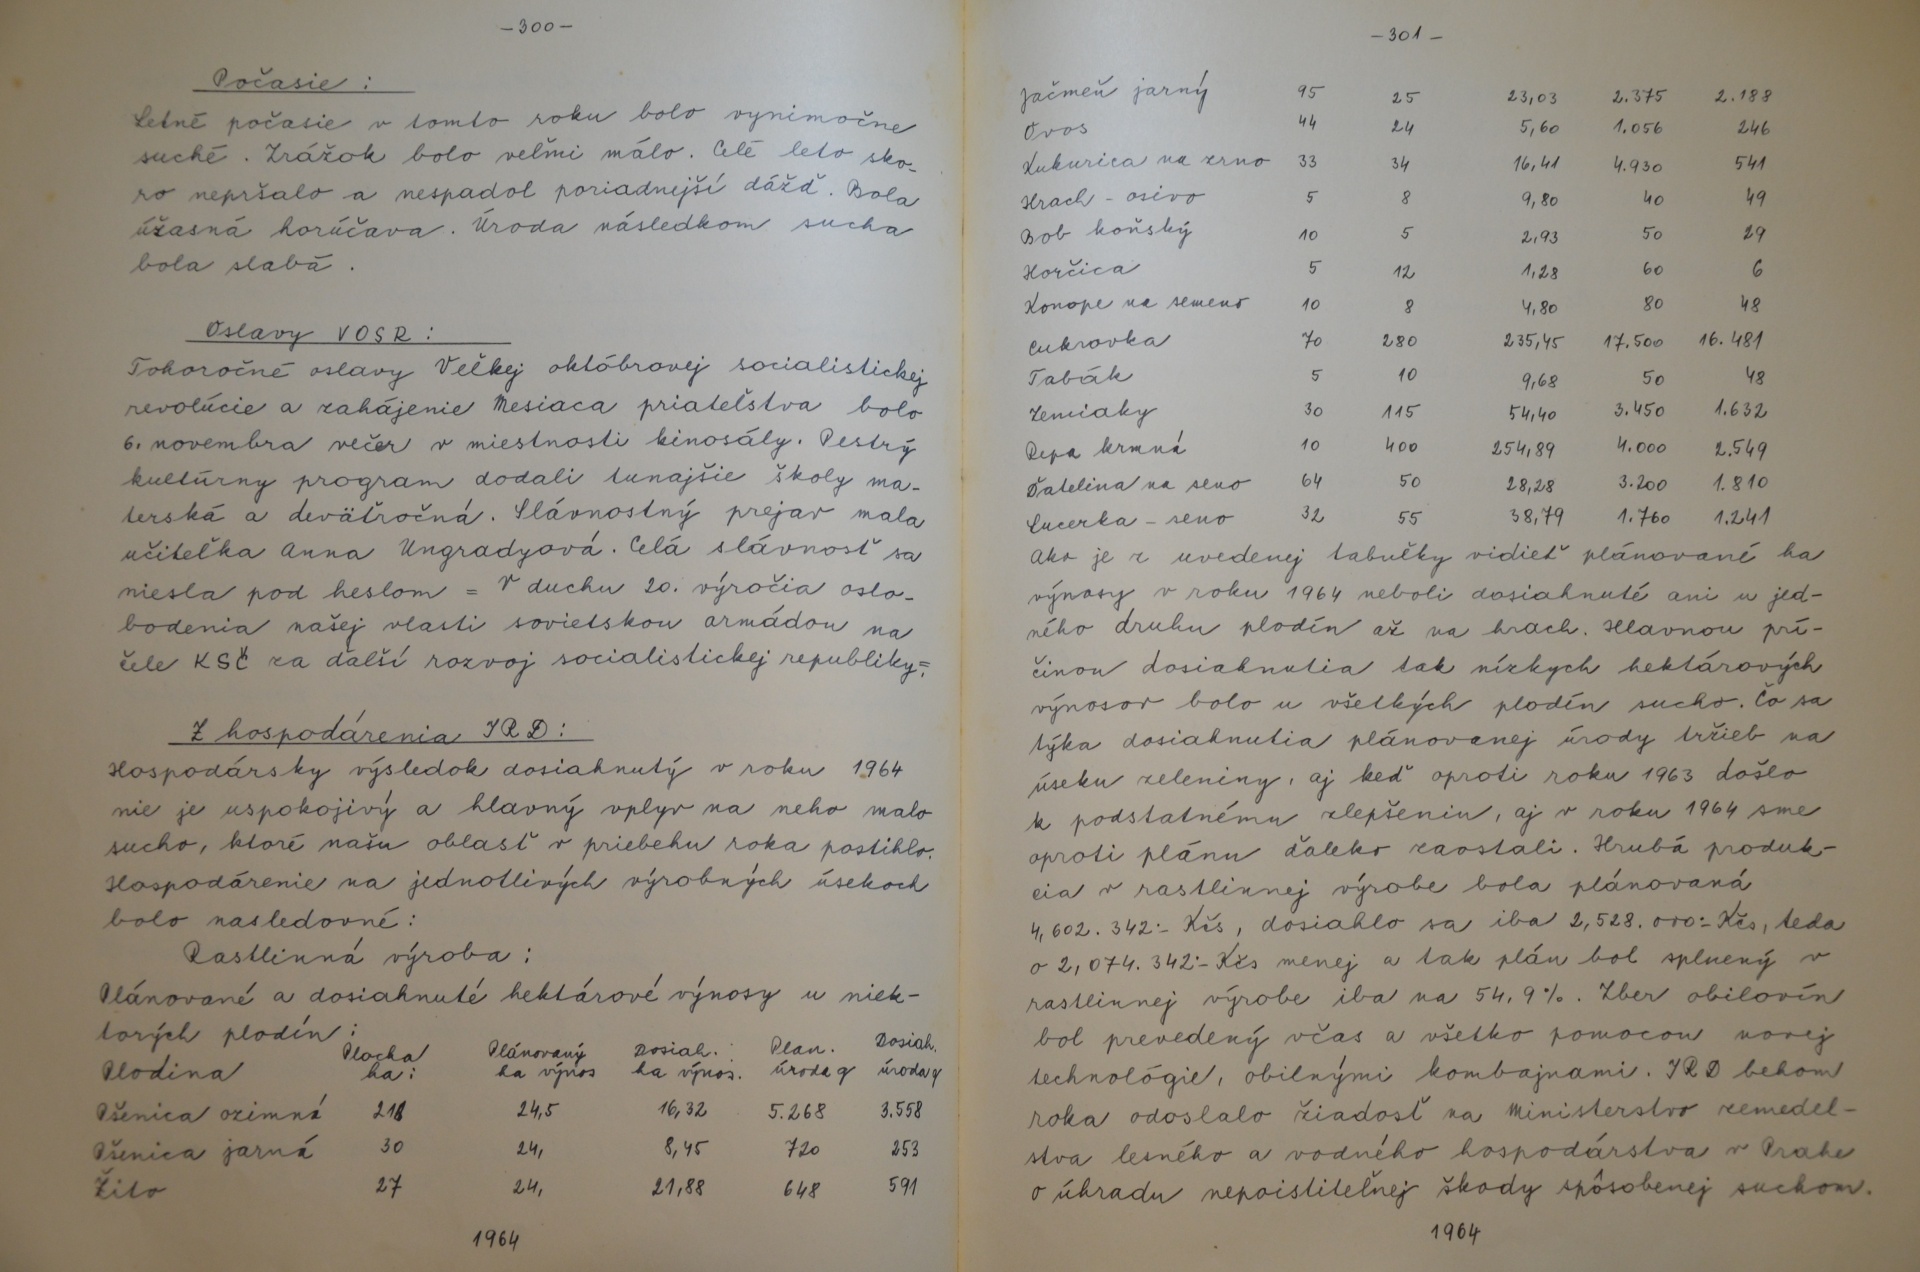 -300-
Počasie :
Letné počasie v tomto roku bolo vynimočne
suché. Zrážok bolo veľmi málo. Celé leto sko-
ro nepršalo a nespadol poriadnejší dážď. Bola
úžasná horúčava. Úroda následkom sucha
bola slabá.
Oslavy VOSR :
Tohoročné oslavy Veľkej októbrovej socialistickej
revolúcie a zahájenie Mesiaca priateľstva bolo
6. novembra večer v miestnosti kinosály. Pestrý
kultúrny program dodali tunajšie školy ma-
terská a deväťročná. Slávnostný prejav mala
učiteľka Anna Ungradyová. Celá slávnosť sa
niesla pod heslom = V duchu 20. výročia oslo-
bodenia našej vlasti sovietskou armádou na
čele KSČ za ďalší rozvoj socialistickej republiky=
Z hospodárenia JRD :
Hospodársky výsledok dosiahnutý v roku 1964
nie je uspokojivý a hlavný vplyv na neho malo
sucho, ktoré našu oblasť v priebehu roka postihlo.
Hospodárenie na jednotlivých výrobných úsekoch
bolo nasledovné :
Rastlinná výroba :
Plánované a dosiahnuté hektárové výnosy u niek-
torých plodín :
Plodina Plocha ha: Plánovaný ha výnos Dosiah. ha výnos. Plan. úroda q Dosiah. úroda q
Pšenica ozimná 218 24,5 16,32 5.268 3.558
Pšenica jarná 30 24, 8,45 720 253
Žito 27 24, 21,88 648 591
1964
-301-
Jačmeň jarný 95 25 23,03 2.375 2.188
Ovos 44 24 5,60 1.056 246
Kukurica na zrno 33 34 16,41 4.930 541
Hrach - osivo 5 8 9,80 40 49
Bob koňský 10 5 2,93 50 29
Horčica 5 12 1,28 60 6
Konope na semeno 10 8 4,80 80 48
Cukrovka 70 280 235,45 17.500 16.481
Tabák 5 10 9,68 50 48
Zemiaky 30 115 54,40 3.450 1.632
Repa krmná 10 400 254,89 4.000 2.549
Ďatelina na seno 64 50 28,28 3.200 1.810
Lucerka - seno 32 55 38,79 1.760 1.241
Ako je z uvedenej tabuľky vidieť plánované ha
výnosy v roku 1964 neboli dosiahnuté ani u jed-
ného druhu plodín až na hrach. Hlavnou prí-
činou dosiahnutia tak nízkych hektárových
výnosov bolo u všetkých plodín sucho. Čo sa
týka dosiahnutia plánovanej úrody tržieb na
úseku zeleniny, aj keď oproti roku 1963 došlo
k podstatnému zlepšeniu, aj v roku 1964 sme
oproti plánu ďaleko zaostali. Hrubá produk-
cia v rastlinnej výrobe bola plánovaná
4,602.342:- Kčs, dosiahlo sa iba 2,528.000:- Kčs, teda
o 2,074.342:- Kčs menej a tak plán bol splnený v
rastlinnej výrobe iba na 54,9%. Zber obilovín
bol prevedený včas a všetko pomocou novej
technológie, obilnými kombajnami. JRD behom
roka odoslalo žiadosť na Ministerstvo zemedel-
stva lesného a vodného hospodárstva v Prahe
o úhradu nepoistiteľnej škody spôsobenej suchom.
1964